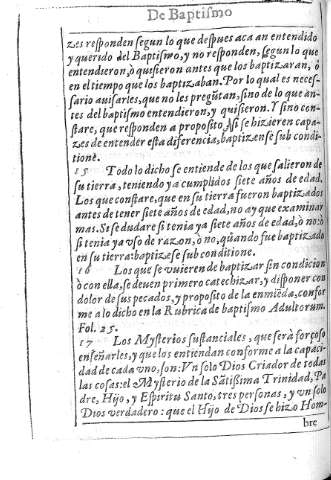 De Baptiſmo
zes reſponden ſegun lo que deſpues aca an entendido
y querido del Baptiſmo, y no reſponden, ſegun lo que
entendieron, ò quiſieron antes que los baptizaran, ò
en el tiempo que los baptizaban. Por lo qual es neceſ-
ſario auiſarles, que no les pregũtan, ſino de lo que an-
tes del baptiſmo entendieron, y quiſieron. Y ſino con-
ſtare, que reſponden a propoſito, Ni ſe hizieren capa-
zes de entender eſta diferencia, baptizenſe ſub condi-
tionẽ.
15 Todo lo dicho ſe entiende de los que ſalieron de
ſu tierra, teniendo ya cumplidos ſiete años de edad.
Los que conſtare, que en ſu tierra fueron baptizados
antes de tener ſiete años de edad, no ay que examinar
mas. Si ſe dudare ſi tenia ya ſiete años de edad, ò no: ò
ſi tenia ya vſo de razon, ò no, quãndo fue baptizado
en ſu tierra: baptizeſe ſub conditione.
16 Los que ſe vuieren de baptizar ſin condicion
ò con ella, ſe deuen primero catechizar, y diſponer con
dolor de ſus pecados, y propoſito de la enmiẽda, confor
me a lo dicho en la Rubrica de baptiſmo Adultorum.
Fol. 25.
17 Los Myſterios ſuſtanciales, que ſerà forçoſo
enſeñarles, y que los entiendan conforme a la capaci-
dad de cada vno, ſon: Vn ſolo Dios Criador de todas
las coſas: el Myſterio de la Sãtiſſima Trinidad, Pa
dre, Hijo, y Eſpiritu Santo, tres perſonas, y vn ſolo
Dios verdadero: que el Hijo de Dios ſe hizo Hom-
bre